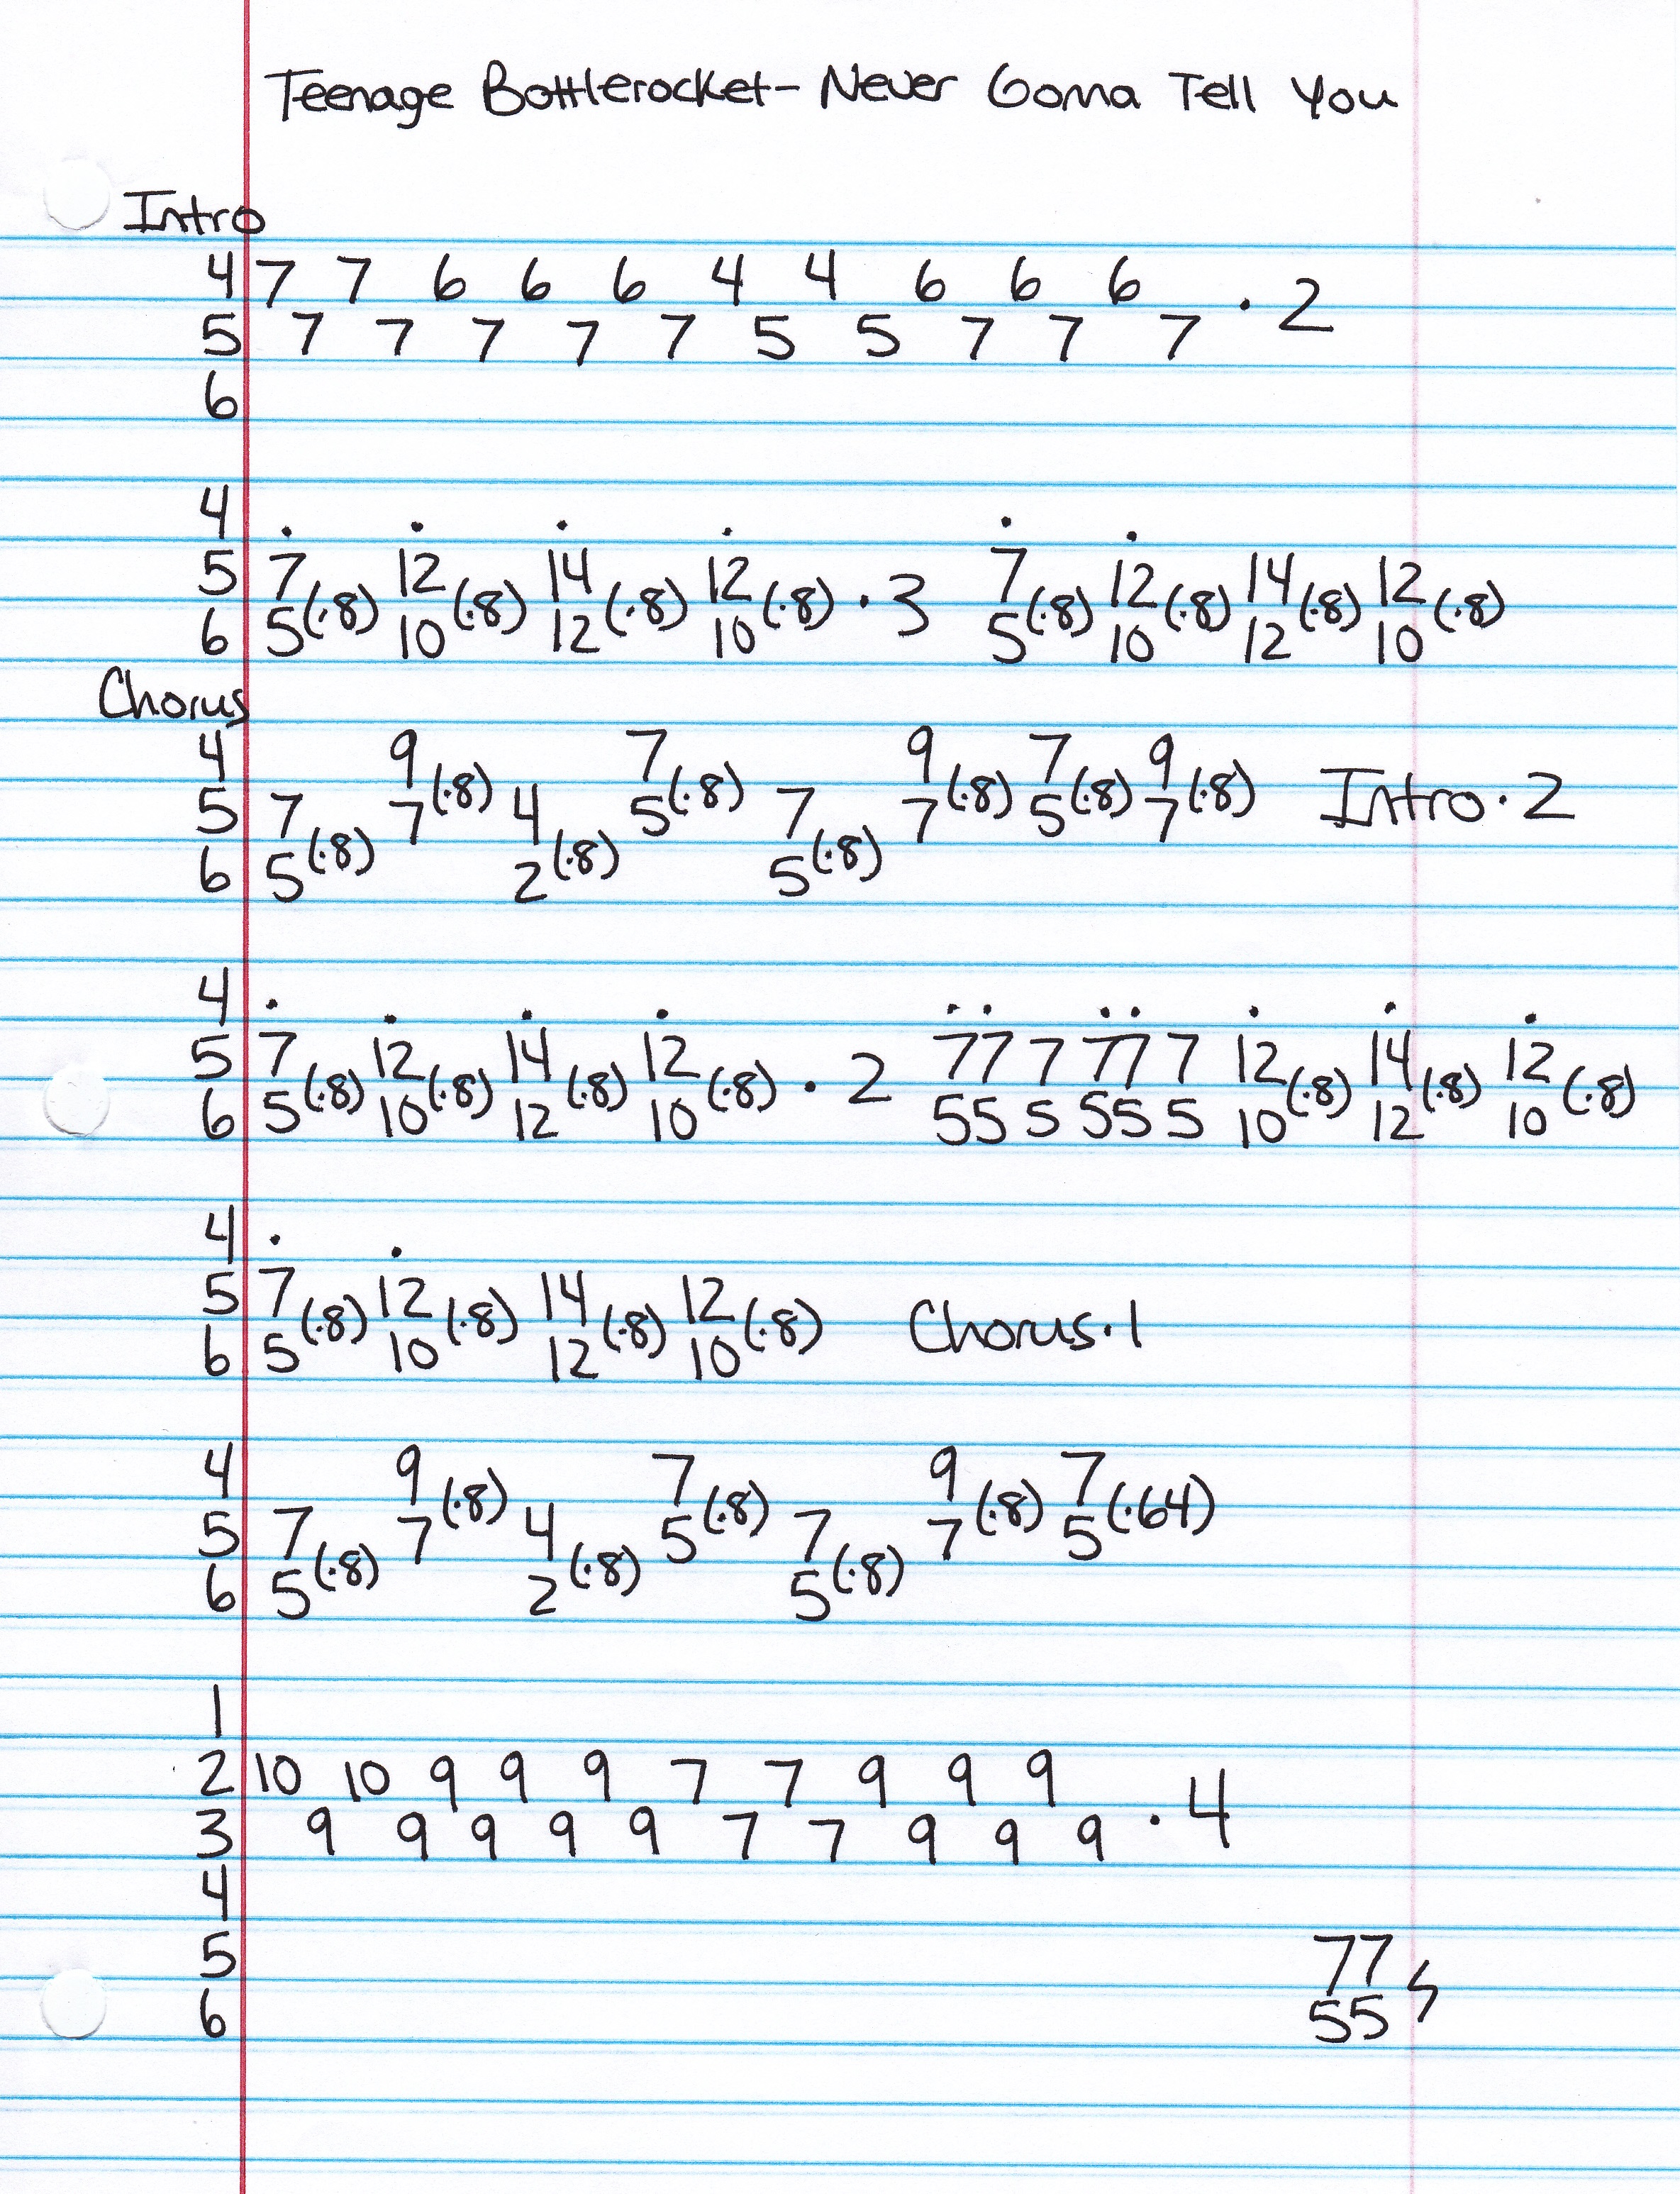 Teenage Bottlerocket- Never Gonna Tell You
Intro
4 7 7 6 6 6 4 4 6 6 6
5 7 7 7 7 7 5 5 7 7 7 · 2
6
4 · · · · · ·
5 7 12 14 12 7 12 14 12
(·8) (·8) (·8) (·8) · 3 (·8) (·8) (·8) (·8)
6 5 10 12 10 5 10 12 10
Chorus
4 9 7 9 7 9
(·8) (·8) (·8) (·8) (·8) Intro · 2
5 7 7 4 5 7 7 5 7
(·8) (·8) (·8)
6 5 2 5
4 · · · · ·· ·· · · ·
5 7 12 14 12 77 7 77 7 12 14 12
(·8) (·8) (·8) (·8) · 2 (·8) (·8) (·8)
6 5 10 12 10 55 5 55 5 10 12 10
4 · ·
5 7 12 14 12
(·8) (·8) (·8) (·8) Chorus · 1
6 5 10 12 10
4 9 7 9 7
(·8) (·8) (·8) (·64)
5 7 7 4 5 7 7 5
(·8) (·8) (·8)
6 5 2 5
1
2 10 10 9 9 9 7 7 9 9 9
3 9 9 9 9 9 7 7 9 9 9 · 4
4
5 77
6 55